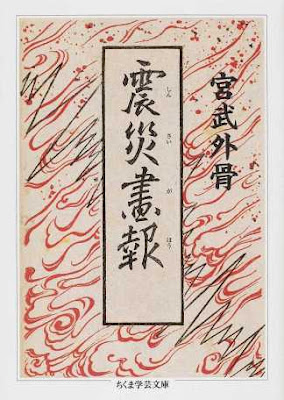 宮武外骨
震災畫報
しん
さい
が
ほう
ちくま学芸文庫